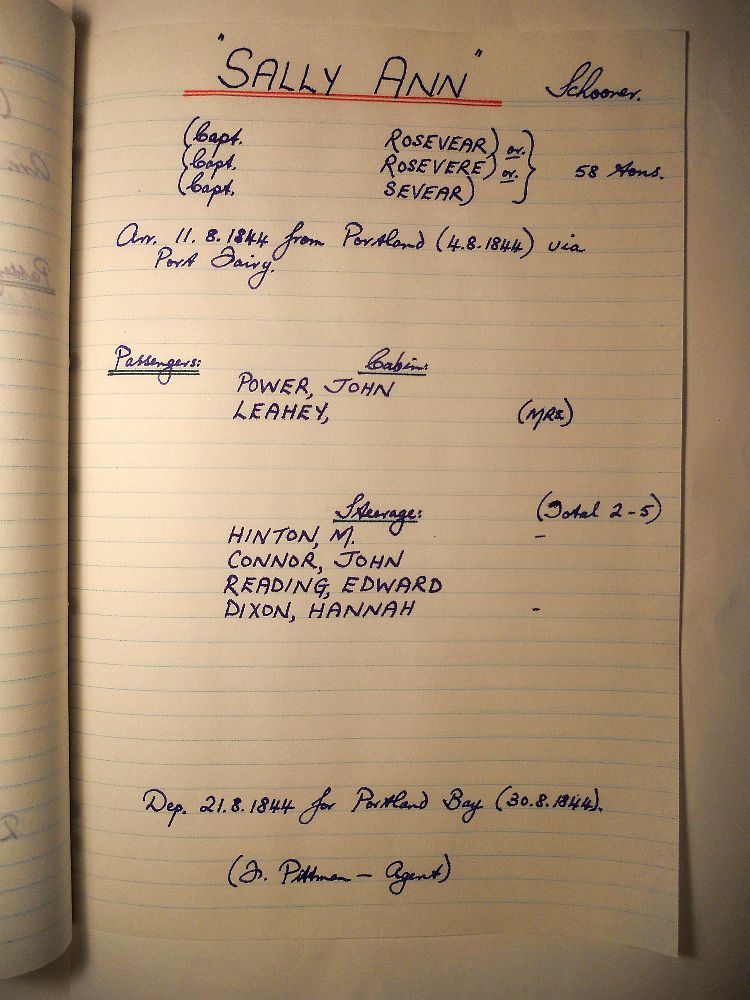 "SALLY ANN" Schooner.
(Capt. ROSEVEAR) or.
(Capt. ROSEVERE) or. 58 tons.
(Capt. SEVEAR)
Arr. 11.8.1844 from Portland (4.8.1844) via
Port Fairy.
Passengers: Cabin:
POWER, JOHN
LEAHEY, (MRS)
Steerage: (Total 2-5)
HINTON, M. -
CONNOR, JOHN
READING, EDWARD
DIXON, HANNAH -
Dep. 21.8.1844 for Portland Bay (30.8.1844).
(J. Pittman - Agent)